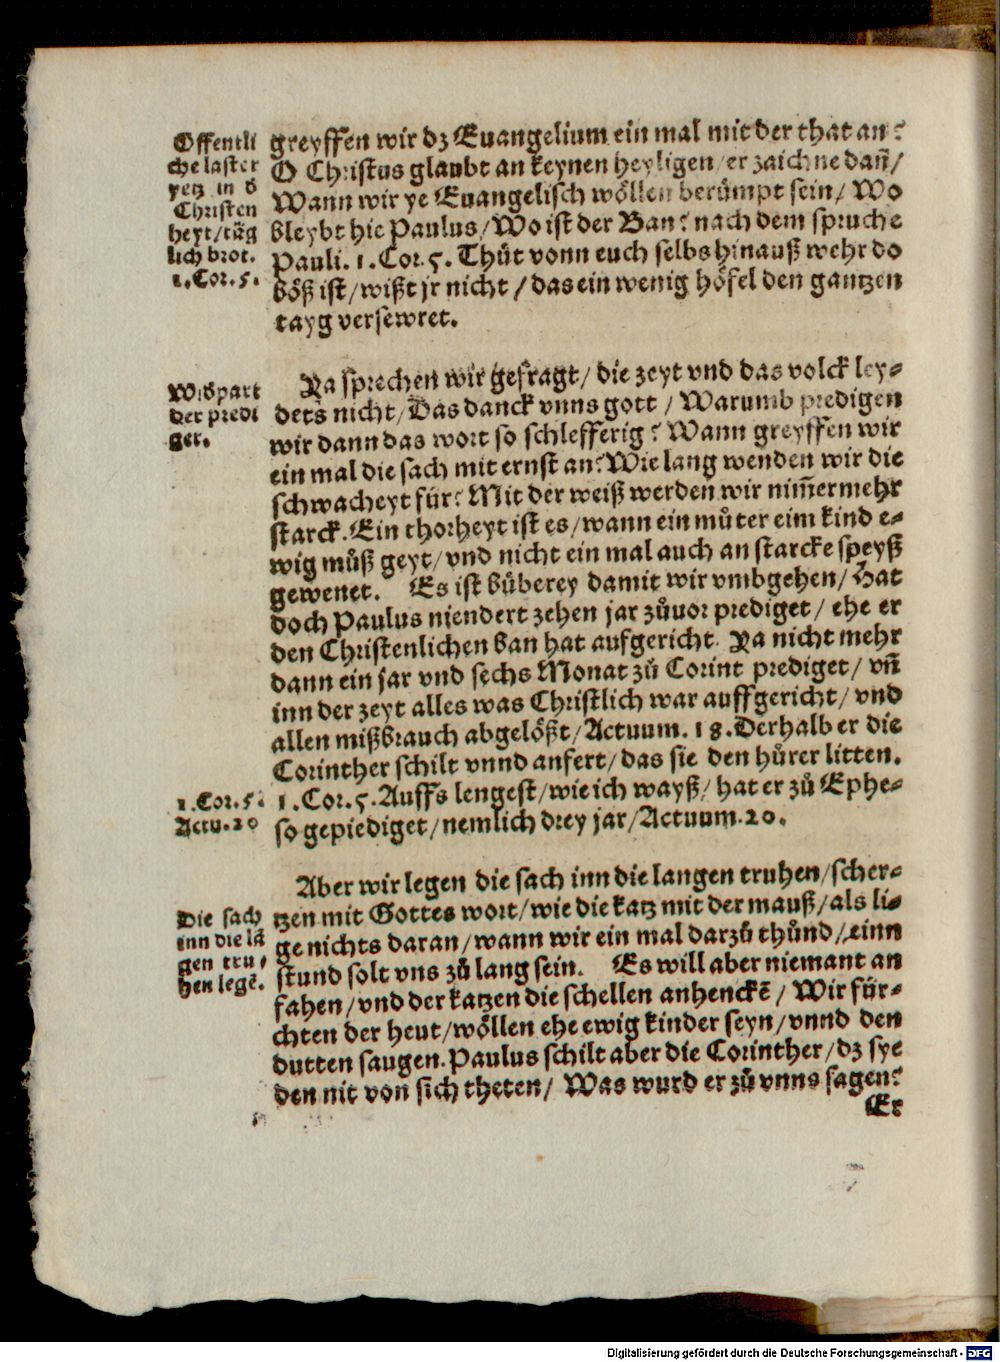 Offentli
che laster
yetz in d̕
Christen
heyt/täg
lich brot.
1. Cor. 5.
greyffen wir dz Euangelium ein mal mit der that an?
O Christus glaubt an keynen heyligen/er zaichne dañ/
Wann wir ye Euangelisch wöllen berümpt sein/Wo
bleybt hie Paulus/Wo ist der Ban? nach dem spruche
Pauli. 1. Cor. 5. Thůt vonn euch selbs hinauß wehr do
böß ist/wißt jr nicht/das ein wenig höfel den gantzen
tayg versewret.
Widpart
der predi
ger.
Ya sprechen wir gefragt/die zeyt vnd das volck ley⸗
dets nicht/Das danck vnns gott/Warumb predigen
wir dann das wort so schlefferig? Wann greyffen wir
ein mal die sach mit ernst an? Wie lang wenden wir die
schwacheyt für? Mit der weiß werden wir nim̃ermehr
starck. Ein thorheyt ist es/wann ein můter eim kind e⸗
wig můß geyt/vnd nicht ein mal auch an starcke speyß
gewenet. Es ist bůberey damit wir vmbgehen/Hat
doch Paulus niendert zehen jar zůuor prediget/ehe er
den Christenlichen ban hat aufgericht. Ya nicht mehr
dann ein jar vnd sechs Monat zů Corint prediget/vñ
inn der zeyt alles was Christlich war auffgericht/vnd
allen mißbrauch abgelößt/Actuum. 18. Derhalb er die
Corinther schilt vnnd anfert/das sie den hůrer litten.
1. Cor. 5.
Actu. 20
1. Cor. 5. Auffs lengest/wie ich wayß/hat er zů Ephe⸗
so geprediget/nemlich drey jar/Actuum. 20.
Die sach
inn die lā
gen tru⸗
hen legē.
Aber wir legen die sach inn die langen truhen/scher⸗
tzen mit Gottes wort/wie die katz mit der mauß/als li⸗
ge nichts daran/wann wir ein mal darzů thůnd/einn
stund solt vns zů lang sein. Es will aber niemant an
fahen/vnd der katzen die schellen anhenckē/Wir für⸗
chten der heut/wöllen ehe ewig kinder seyn/vnnd den
dutten saugen. Paulus schilt aber die Corinther/dz sye
den nit von sich theten/Was wurd er zů vnns sagen?
Er
Digitalisierung gefördert durch die Deutsche Forschungsgemeinschaft - DFG